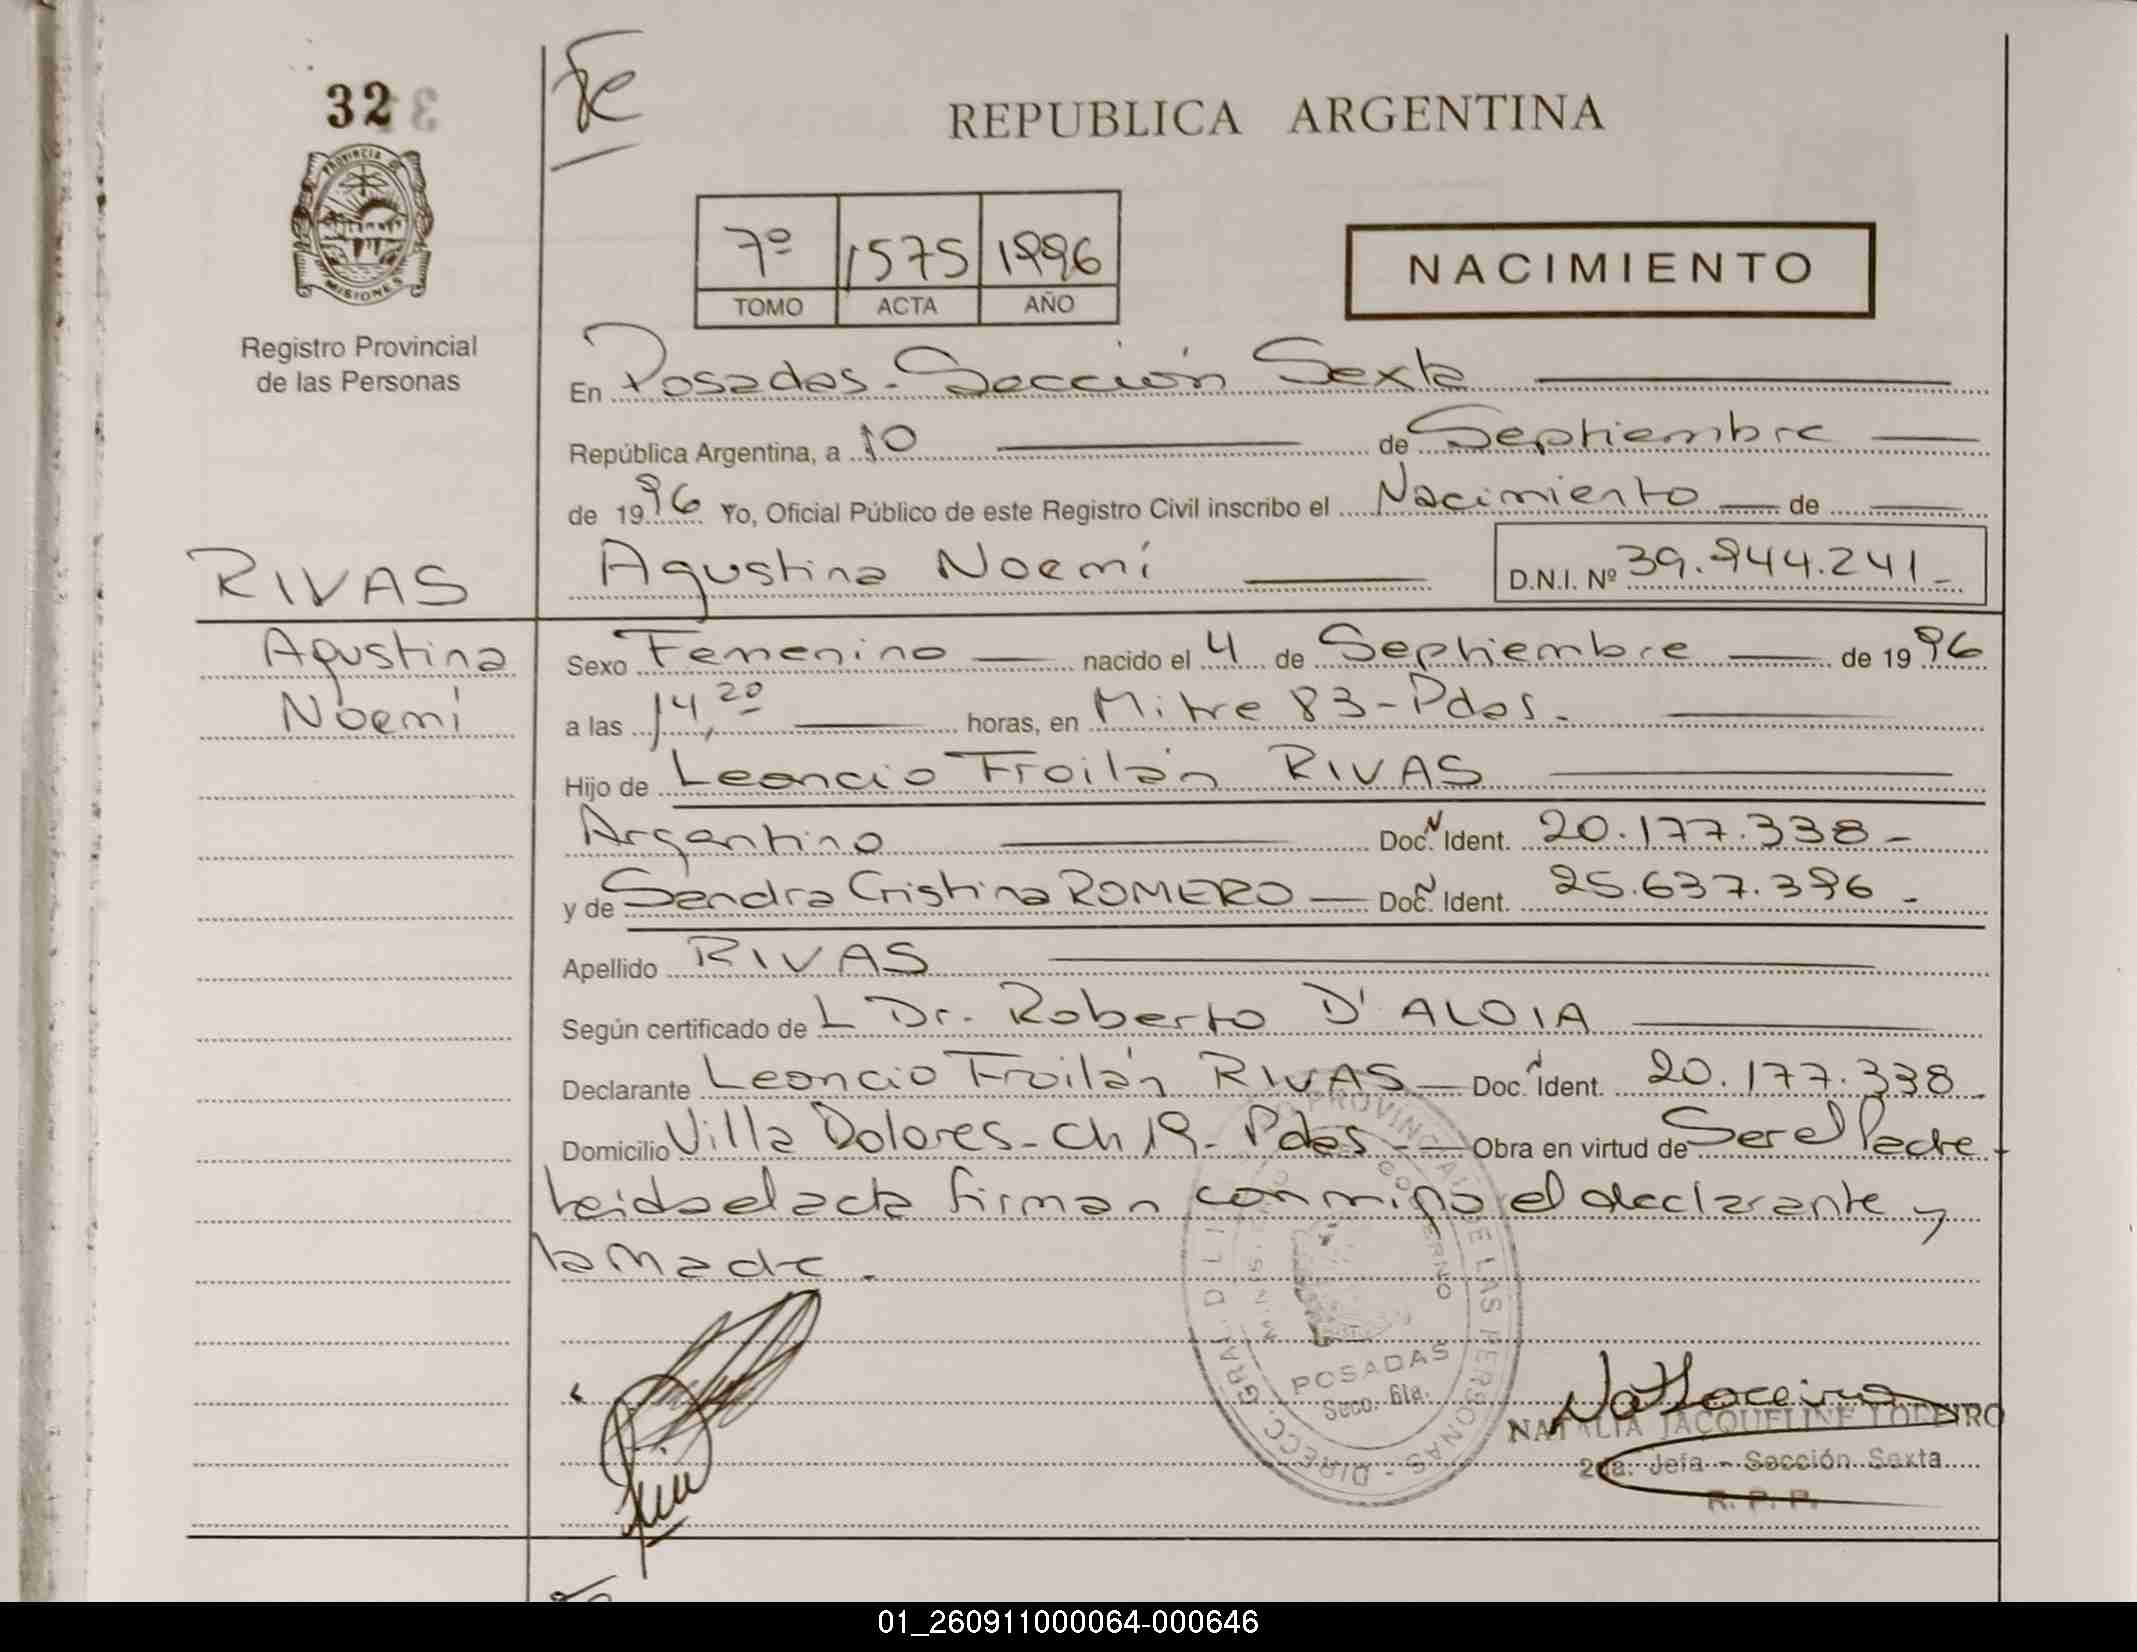 32
Fe
REPUBLICA ARGENTINA
PROVINCIA DE
MISIONES
Registro Provincial
de las Personas
7º 1575 1996
TOMO ACTA AÑO
NACIMIENTO
En Posadas - Sección Sexta
República Argentina, a 10 de Septiembre
de 1996 Yo, Oficial Público de este Registro Civil inscribo el Nacimiento de
RIVAS Agustina Noemí D.N.I. Nº 39.944.241-
Agustina
Noemí
Sexo Femenino nacido el 4 de Septiembre de 1996
a las 14,20 horas, en Mitre 83-Pdas.
Hijo de Leoncio Froilán RIVAS
Argentino Doc. N Ident. 20.177.338-
y de Sandra Cristina ROMERO Doc. N Ident. 25.637.396-
Apellido RIVAS
Según certificado de L Dr. Roberto D'ALOIA
Declarante Leoncio Froilán RIVAS Doc. N Ident. 20.177.338
Domicilio Villa Dolores - Ch 19 - Pdas - Obra en virtud de Ser el Padre
Leida el acta firman conmigo el declarante y
la Madre.
DIRECC. GRAL. DEL PROVINCIAL DE LAS PERSONAS
GOBIERNO
POSADAS
Secc. 6ta.
NATALIA JACQUELINE LODEIRO
2da. Jefa - Sección Sexta
R. P. P.
01_260911000064-000646